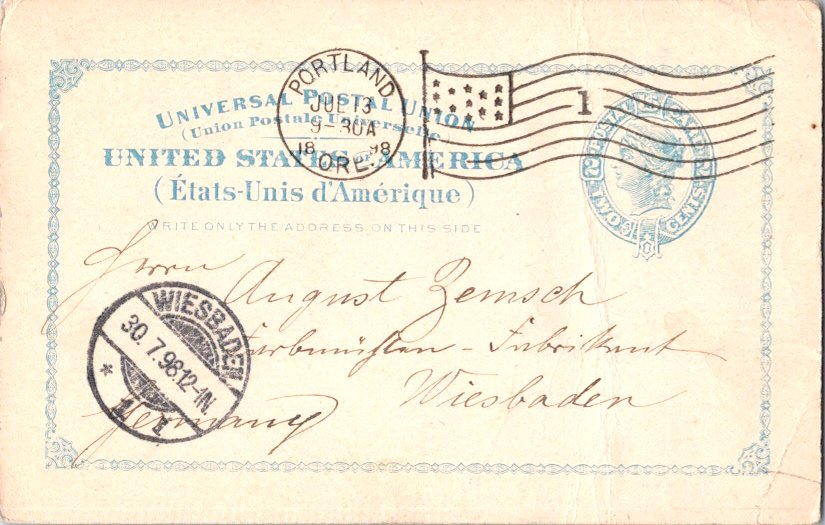 PORTLAND
JUL 13
9-30A
18 98
ORE.
1
UNIVERSAL POSTAL UNION
(Union Postale Universelle)
UNITED STATES OF AMERICA
(États-Unis d'Amérique)
WRITE ONLY THE ADDRESS ON THIS SIDE
POSTAL CARD
2 2
TWO CENTS
Herrn
August Zemsch
Fabrikant
Wiesbaden
Germany
WIESBADEN
30.7.98.12-1N.
* 1